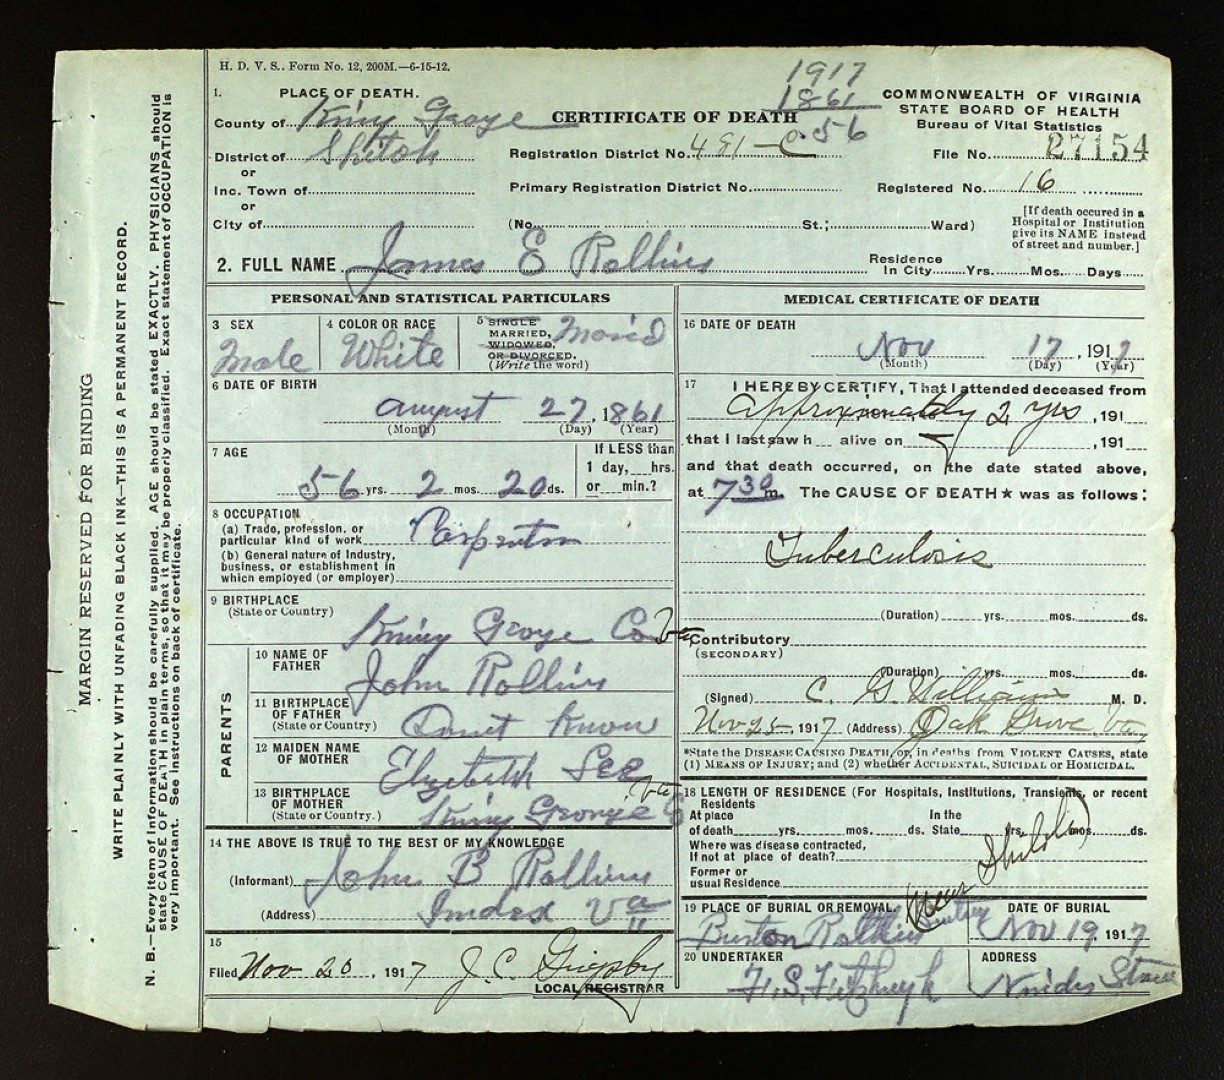 H. D. V. S.. Form No. 12, 200M.—6-15-12.
1917
1861
56
1. PLACE OF DEATH.
County of King George
District of
or
Inc. Town of
or
City of
CERTIFICATE OF DEATH
Registration District No. 481-C
Primary Registration District No.
(No. St.; Ward)
COMMONWEALTH OF VIRGINIA
STATE BOARD OF HEALTH
Bureau of Vital Statistics
File No. 27154
Registered No. 16
[If death occured in a
Hospital or Institution
give its NAME instead
of street and number.]
2. FULL NAME James E Rollins
Residence
In City Yrs. Mos. Days
PERSONAL AND STATISTICAL PARTICULARS
3 SEX
Male
4 COLOR OR RACE
White
5 SINGLE
MARRIED,
WIDOWED,
OR DIVORCED.
(Write the word)
6 DATE OF BIRTH
August 27, 1861
(Month) (Day) (Year)
7 AGE
56 yrs. 2 mos. 20 ds.
If LESS than
1 day, hrs.
or min.?
8 OCCUPATION
(a) Trade, profession, or
particular kind of work
(b) General nature of Industry,
business, or establishment in
which employed (or employer)
9 BIRTHPLACE
(State or Country)
King George Co Va
PARENTS
10 NAME OF
FATHER
John Rollins
11 BIRTHPLACE
OF FATHER
(State or Country)
Dont Know
12 MAIDEN NAME
OF MOTHER
Elizabeth Lee
13 BIRTHPLACE
OF MOTHER
(State or Country.)
King George C Va
14 THE ABOVE IS TRUE TO THE BEST OF MY KNOWLEDGE
(Informant) John B Rollins
(Address) Index Va
15
Filed Nov. 20, 1917 J. C. Grigsby
LOCAL REGISTRAR
MEDICAL CERTIFICATE OF DEATH
16 DATE OF DEATH
Nov 17, 1917
(Month) (Day) (Year)
17 I HEREBY CERTIFY, That I attended deceased from
approximately 2 yrs, 191
that I last saw h alive on , 191
and that death occurred, on the date stated above,
at 7 30 m. The CAUSE OF DEATH★ was as follows:
Tuberculosis
(Duration) yrs. mos. ds.
Contributory
(SECONDARY)
(Duration) yrs. mos. ds.
(Signed) C. G. Williams M. D.
Nov 25, 1917 (Address) Oak Grove, Va
*State the DISEASE CAUSING DEATH, or, in deaths from VIOLENT CAUSES, state
(1) MEANS OF INJURY; and (2) whether ACCIDENTAL, SUICIDAL or HOMICIDAL.
18 LENGTH OF RESIDENCE (For Hospitals, Institutions, Transients, or recent
Residents
At place In the
of death yrs. mos. ds. State yrs. mos. ds.
Where was disease contracted,
If not at place of death?
Former or
usual Residence
near Shiloh
19 PLACE OF BURIAL OR REMOVAL.
Burton Rollins
DATE OF BURIAL
Nov 19, 1917
20 UNDERTAKER
F. S. Fitzhugh
ADDRESS
MARGIN RESERVED FOR BINDING
WRITE PLAINLY WITH UNFADING BLACK INK—THIS IS A PERMANENT RECORD.
N. B.—Every item of Information should be carefully supplied. AGE should be stated EXACTLY. PHYSICIANS should
state CAUSE OF DEATH in plain terms, so that it may be properly classified. Exact statement of OCCUPATION is
very important. See instructions on back of certificate.